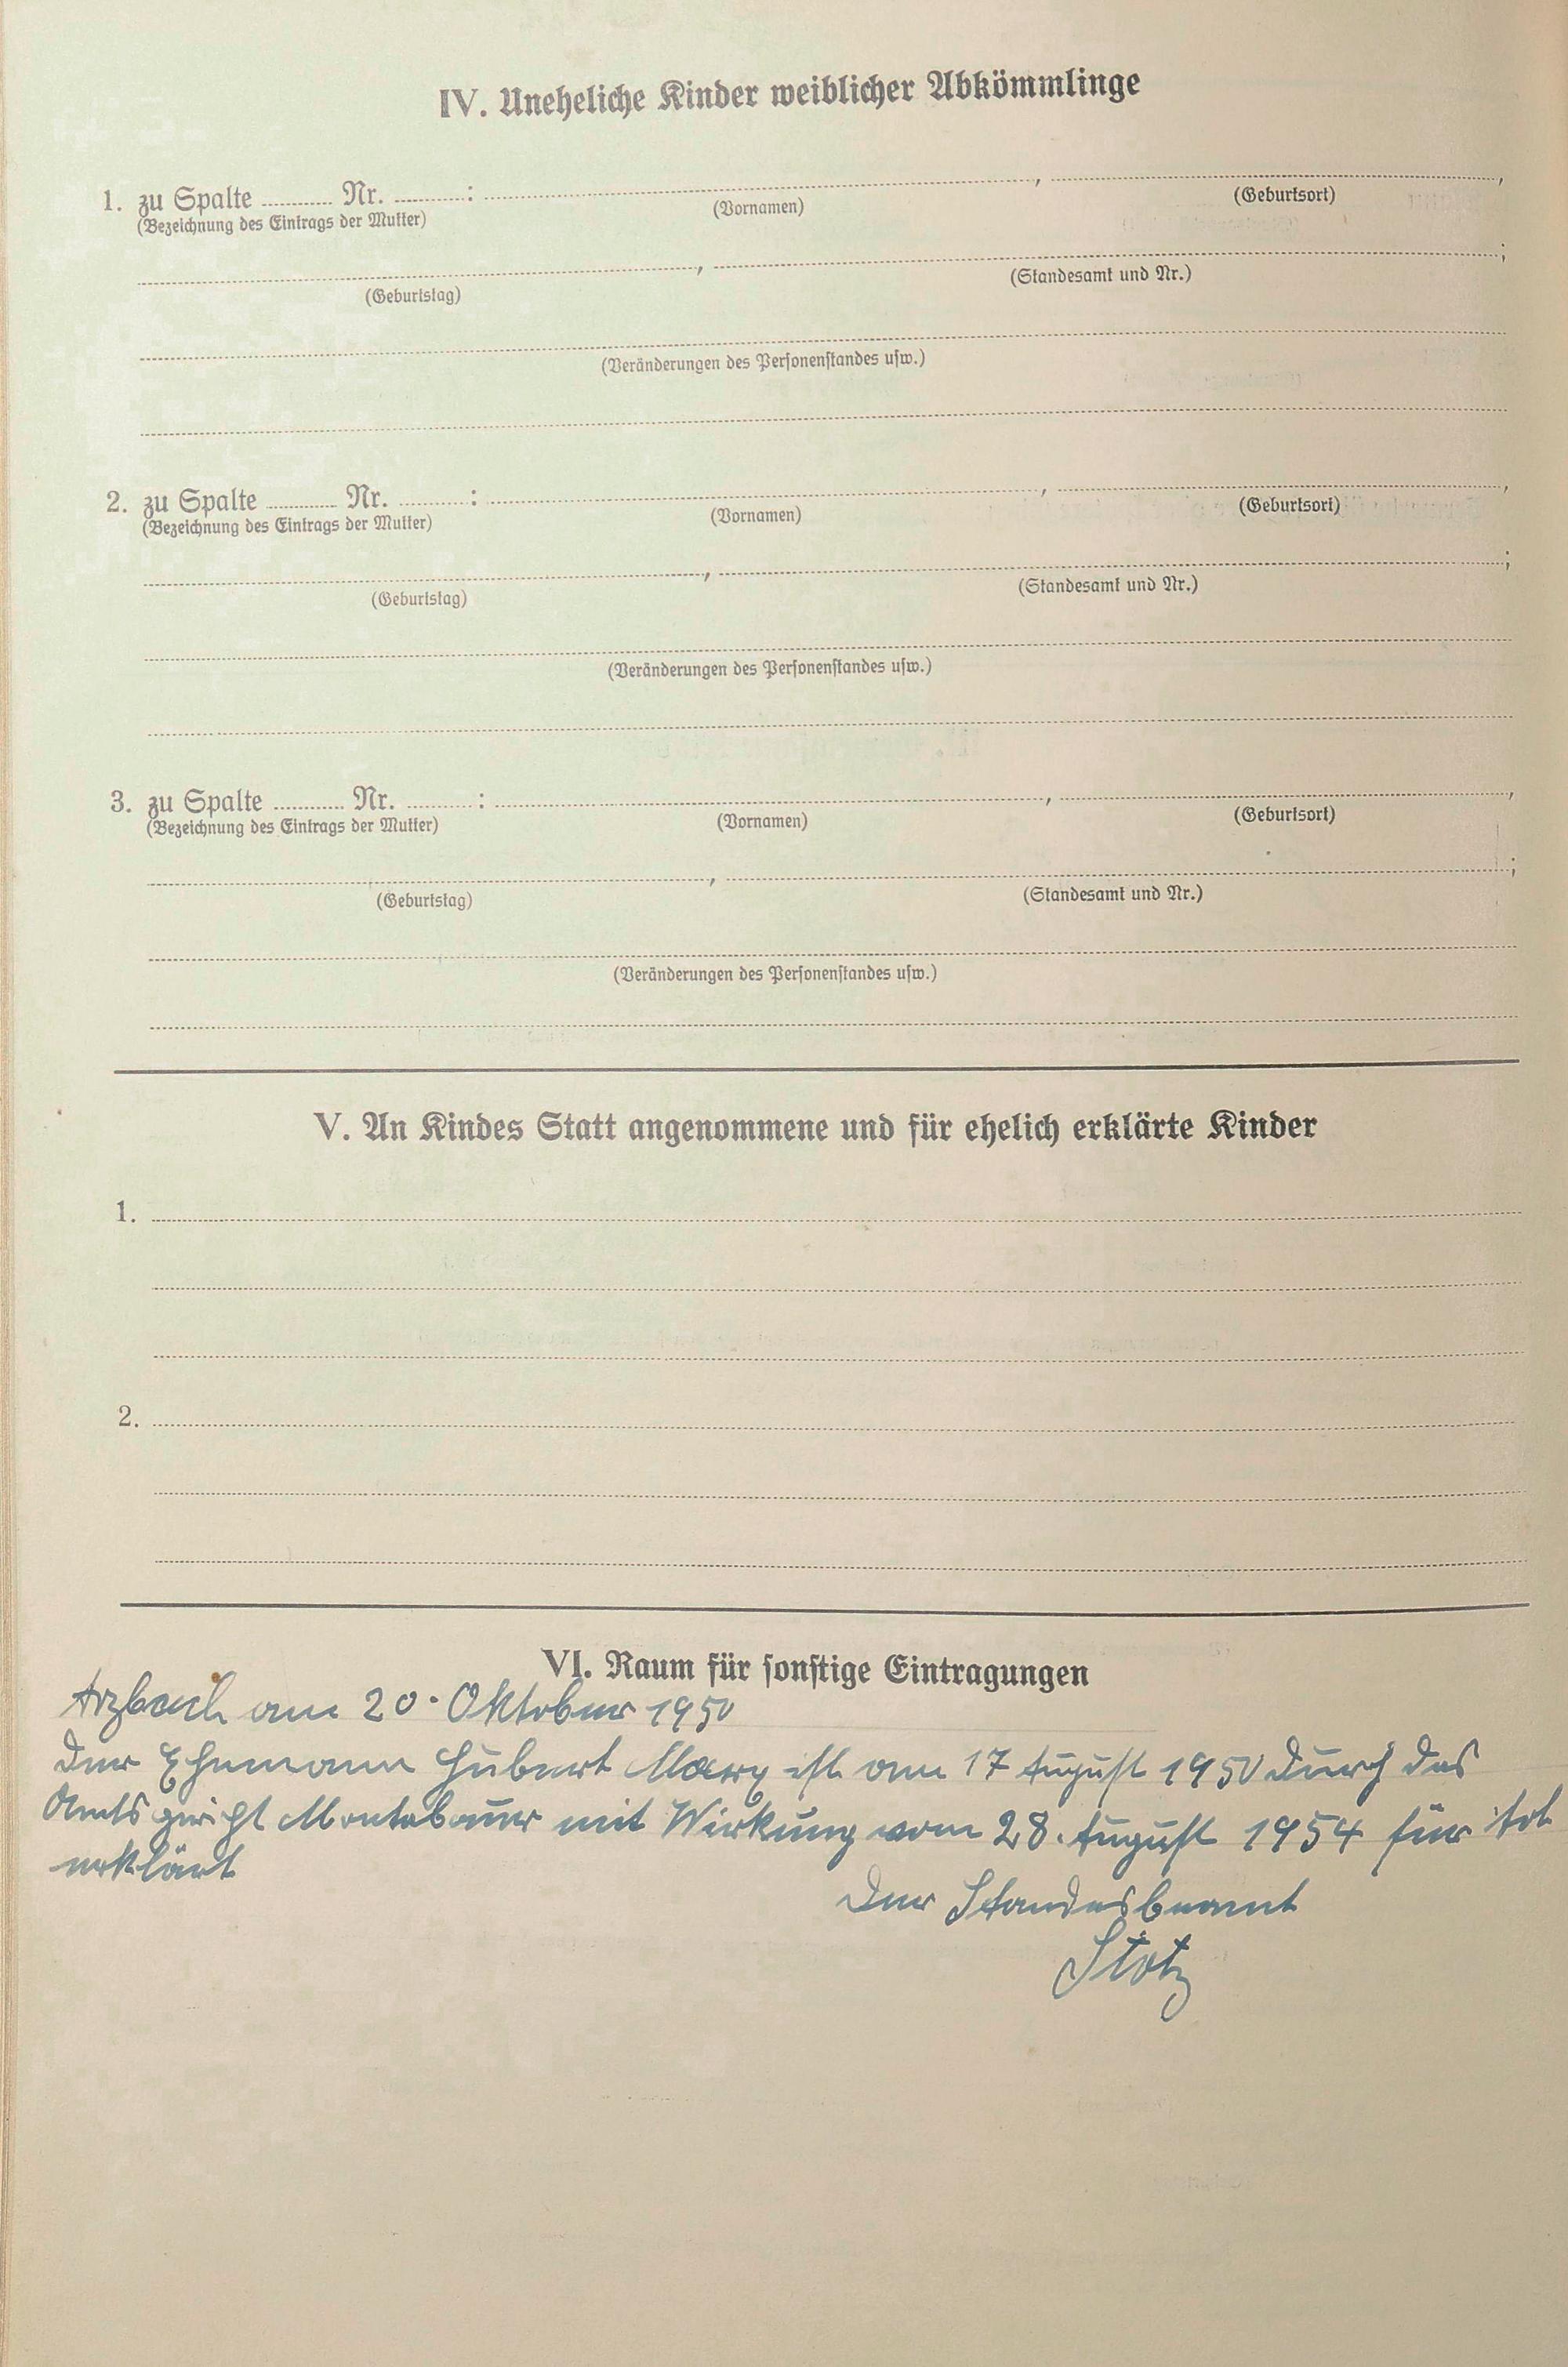 IV. Uneheliche Kinder weiblicher Abkömmlinge
1. zu Spalte ........... Nr. ...........: ..........................., ...........................,
(Bezeichnung des Eintrags der Mutter) (Vornamen) (Geburtsort)
..........................., ...........................;
(Geburtstag) (Standesamt und Nr.)
(Veränderungen des Personenstandes usw.)
2. zu Spalte ........... Nr. ...........: ..........................., ...........................,
(Bezeichnung des Eintrags der Mutter) (Vornamen) (Geburtsort)
..........................., ...........................;
(Geburtstag) (Standesamt und Nr.)
(Veränderungen des Personenstandes usw.)
3. zu Spalte ........... Nr. ...........: ..........................., ...........................,
(Bezeichnung des Eintrags der Mutter) (Vornamen) (Geburtsort)
..........................., ...........................;
(Geburtstag) (Standesamt und Nr.)
(Veränderungen des Personenstandes usw.)
V. An Kindes Statt angenommene und für ehelich erklärte Kinder
1.
2.
VI. Raum für sonstige Eintragungen
Arzbach am 20. Oktober 1950
Der Ehemann Hubert Marx ist am 17 August 1950 durch das
Amtsgericht Montabaur mit Wirkung vom 28. August 1954 für tot
erklärt
Der Standesbeamt
Stotz